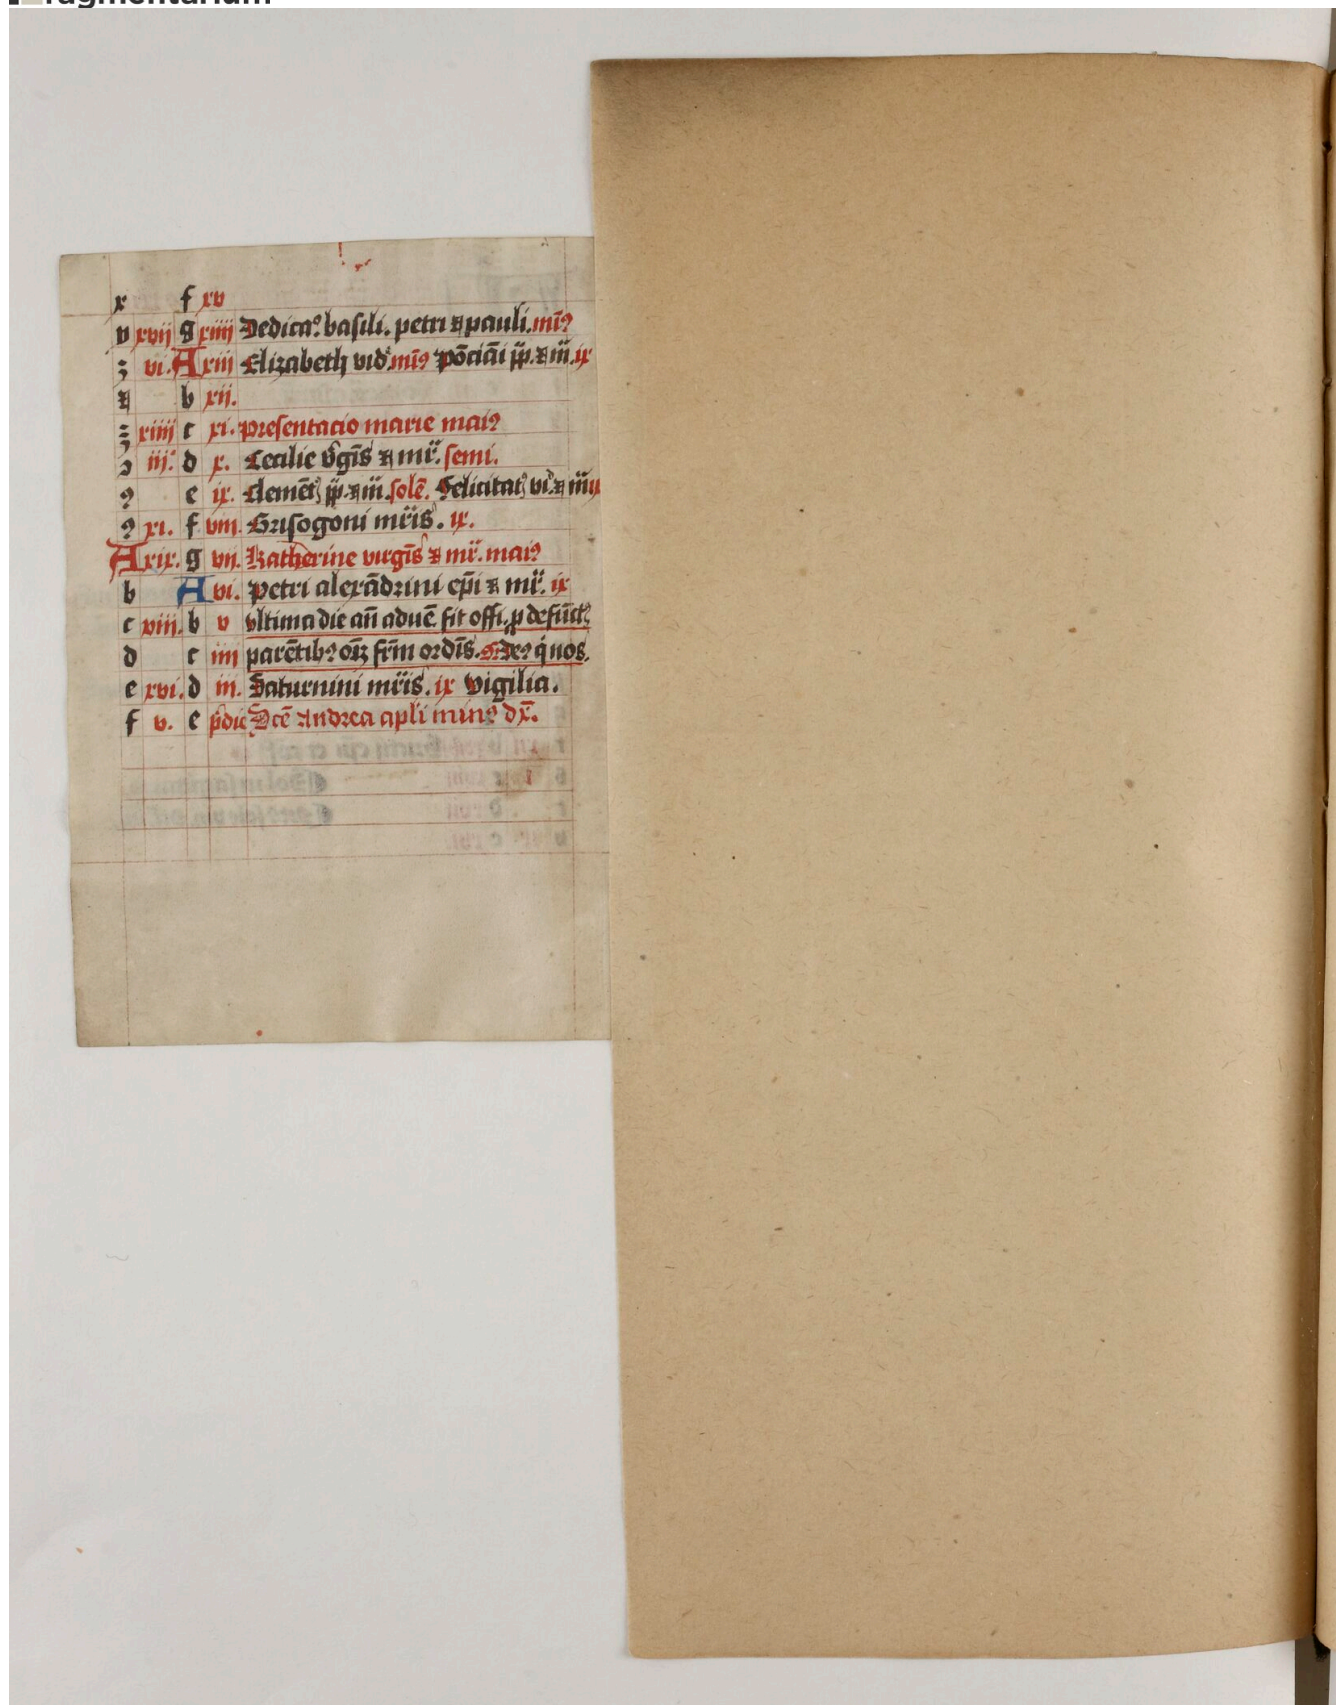 ragmentarium
x f xv
v xvij g xiiii Dedica⁹ basili. petri ⁊ pauli. mī⁹
vi. A xiii Elizabeth vid. mī⁹ pōciāi pp̄. ⁊ m̄. ix
b xii.
xiiii c xi. presentacio marie mai⁹
iij. d x. Cecilie v̓gīs ⁊ mr̄. semi.
⁹ e ix. Clemēt pp̄. ⁊ m̄. solē. Felicitat vi. ⁊ m̄
⁹ xi. f viii. Grisogoni mr̄is. ix.
A xix. g vij. Katherine virgīs ⁊ mr̄. mai⁹
b A vi. petri alexādrini ep̄i ⁊ mr̄. ix
c viij. b v vltima die añ aduē. fit offi. ꝓ defūct
d c iiij parētib⁹ oīꝫ fr̄m ordīs. De⁹ q̇ nos.
e xvi. d iii. Saturnini mr̄is. ix vigilia.
f v. e p̄die Scē Andrea apli min⁹ dx̄.